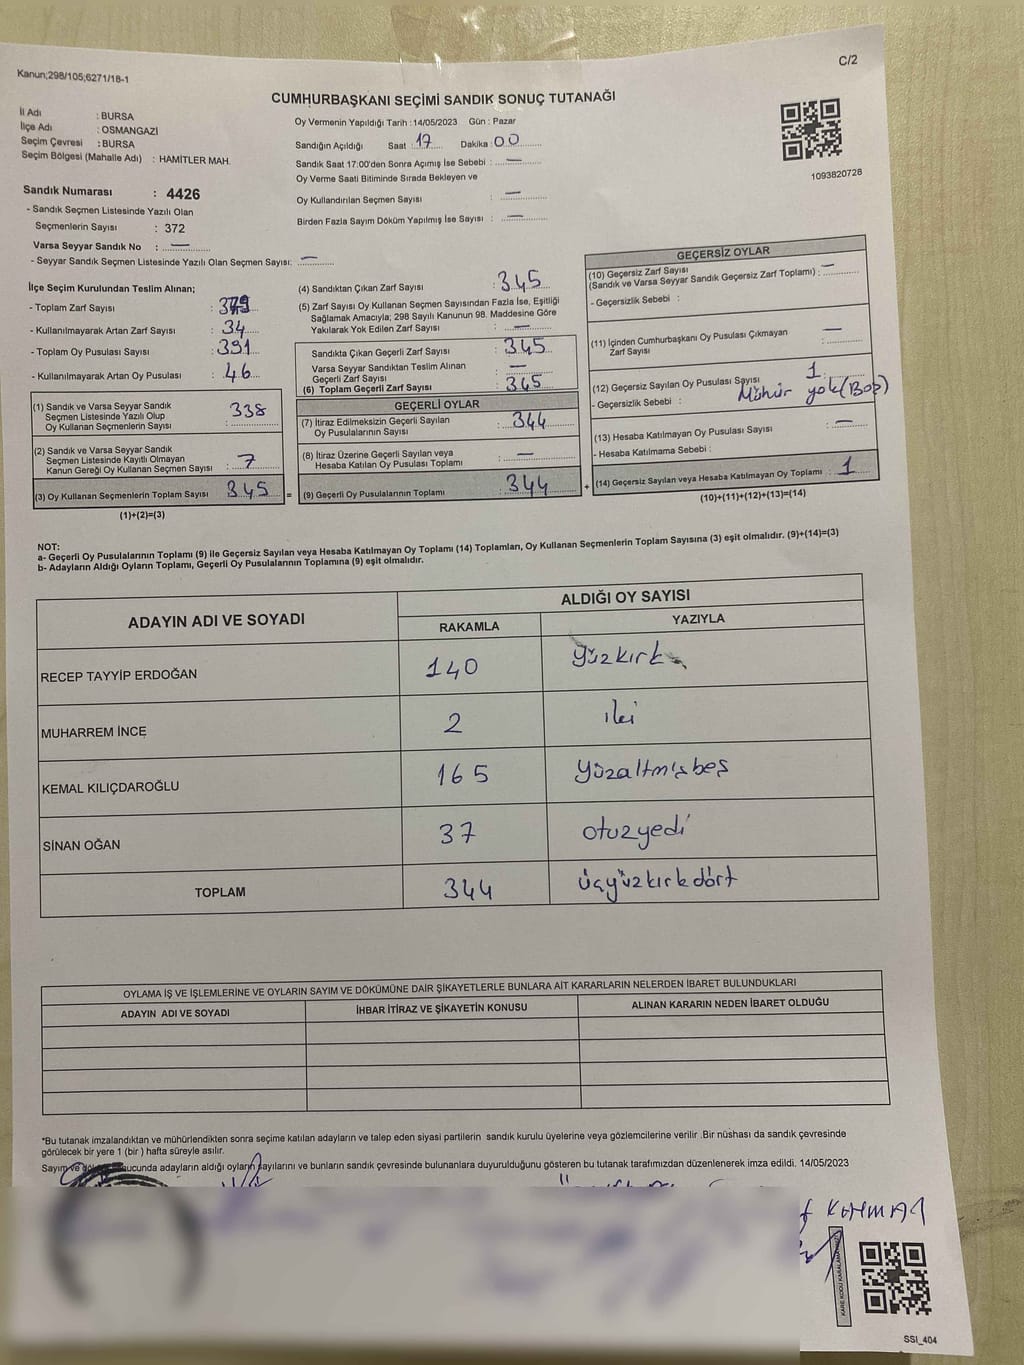 C/2
Kanun;298/105;6271/18-1
CUMHURBAŞKANI SEÇİMİ SANDIK SONUÇ TUTANAĞI
İl Adı : BURSA
İlçe Adı : OSMANGAZİ
Seçim Çevresi : BURSA
Seçim Bölgesi (Mahalle Adı) : HAMİTLER MAH.
Oy Vermenin Yapıldığı Tarih : 14/05/2023 Gün : Pazar
Sandığın Açıldığı Saat 17 Dakika : 00
Sandık Saat 17:00'den Sonra Açımış İse Sebebi : —
Oy Verme Saati Bitiminde Sırada Bekleyen ve
Oy Kullandırılan Seçmen Sayısı : —
Birden Fazla Sayım Döküm Yapılmış İse Sayısı : —
1093820728
Sandık Numarası : 4426
- Sandık Seçmen Listesinde Yazılı Olan
Seçmenlerin Sayısı : 372
Varsa Seyyar Sandık No : —
- Seyyar Sandık Seçmen Listesinde Yazılı Olan Seçmen Sayısı: —
İlçe Seçim Kurulundan Teslim Alınan;
- Toplam Zarf Sayısı :
- Kullanılmayarak Artan Zarf Sayısı : 34
- Toplam Oy Pusulası Sayısı : 391
- Kullanılmayarak Artan Oy Pusulası : 46
(1) Sandık ve Varsa Seyyar Sandık
Seçmen Listesinde Yazılı Olup
Oy Kullanan Seçmenlerin Sayısı : 338
(2) Sandık ve Varsa Seyyar Sandık
Seçmen Listesinde Kayıtlı Olmayan
Kanun Gereği Oy Kullanan Seçmen Sayısı : 7
(3) Oy Kullanan Seçmenlerin Toplam Sayısı 345 =
(1)+(2)=(3)
(4) Sandıktan Çıkan Zarf Sayısı : 345
(5) Zarf Sayısı Oy Kullanan Seçmen Sayısından Fazla İse, Eşitliği
Sağlamak Amacıyla; 298 Sayılı Kanunun 98. Maddesine Göre
Yakılarak Yok Edilen Zarf Sayısı : —
Sandıkta Çıkan Geçerli Zarf Sayısı : 345
Varsa Seyyar Sandıktan Teslim Alınan
Geçerli Zarf Sayısı : —
(6) Toplam Geçerli Zarf Sayısı : 345
GEÇERLİ OYLAR
(7) İtiraz Edilmeksizin Geçerli Sayılan
Oy Pusulalarının Sayısı : 344
(8) İtiraz Üzerine Geçerli Sayılan veya
Hesaba Katılan Oy Pusulası Toplamı : —
(9) Geçerli Oy Pusulalarının Toplamı : 344 +
GEÇERSİZ OYLAR
(10) Geçersiz Zarf Sayısı
(Sandık ve Varsa Seyyar Sandık Geçersiz Zarf Toplamı) : —
- Geçersizlik Sebebi :
(11) İçinden Cumhurbaşkanı Oy Pusulası Çıkmayan
Zarf Sayısı : —
(12) Geçersiz Sayılan Oy Pusulası Sayısı : 1
- Geçersizlik Sebebi : Mühür yok (Boş)
(13) Hesaba Katılmayan Oy Pusulası Sayısı : —
- Hesaba Katılmama Sebebi :
(14) Geçersiz Sayılan veya Hesaba Katılmayan Oy Toplamı : 1
(10)+(11)+(12)+(13)=(14)
NOT:
a- Geçerli Oy Pusulalarının Toplamı (9) ile Geçersiz Sayılan veya Hesaba Katılmayan Oy Toplamı (14) Toplamları, Oy Kullanan Seçmenlerin Toplam Sayısına (3) eşit olmalıdır. (9)+(14)=(3)
b- Adayların Aldığı Oyların Toplamı, Geçerli Oy Pusulalarının Toplamına (9) eşit olmalıdır.
ADAYIN ADI VE SOYADI
ALDIĞI OY SAYISI
RAKAMLA YAZIYLA
RECEP TAYYİP ERDOĞAN 140 yüzkırk
MUHARREM İNCE 2 iki
KEMAL KILIÇDAROĞLU 165 yüzaltmışbeş
SİNAN OĞAN 37 otuzyedi
TOPLAM 344 üçyüzkırkdört
OYLAMA İŞ VE İŞLEMLERİNE VE OYLARIN SAYIM VE DÖKÜMÜNE DAİR ŞİKAYETLERLE BUNLARA AİT KARARLARIN NELERDEN İBARET BULUNDUKLARI
ADAYIN ADI VE SOYADI İHBAR İTİRAZ VE ŞİKAYETİN KONUSU ALINAN KARARIN NEDEN İBARET OLDUĞU
*Bu tutanak imzalandıktan ve mühürlendikten sonra seçime katılan adayların ve talep eden siyasi partilerin sandık kurulu üyelerine veya gözlemcilerine verilir .Bir nüshası da sandık çevresinde
görülecek bir yere 1 (bir ) hafta süreyle asılır.
Sayım ve ucunda adayların aldığı oyların sayılarını ve bunların sandık çevresinde bulunanlara duyurulduğunu gösteren bu tutanak tarafımızdan düzenlenerek imza edildi. 14/05/2023
SSI_404